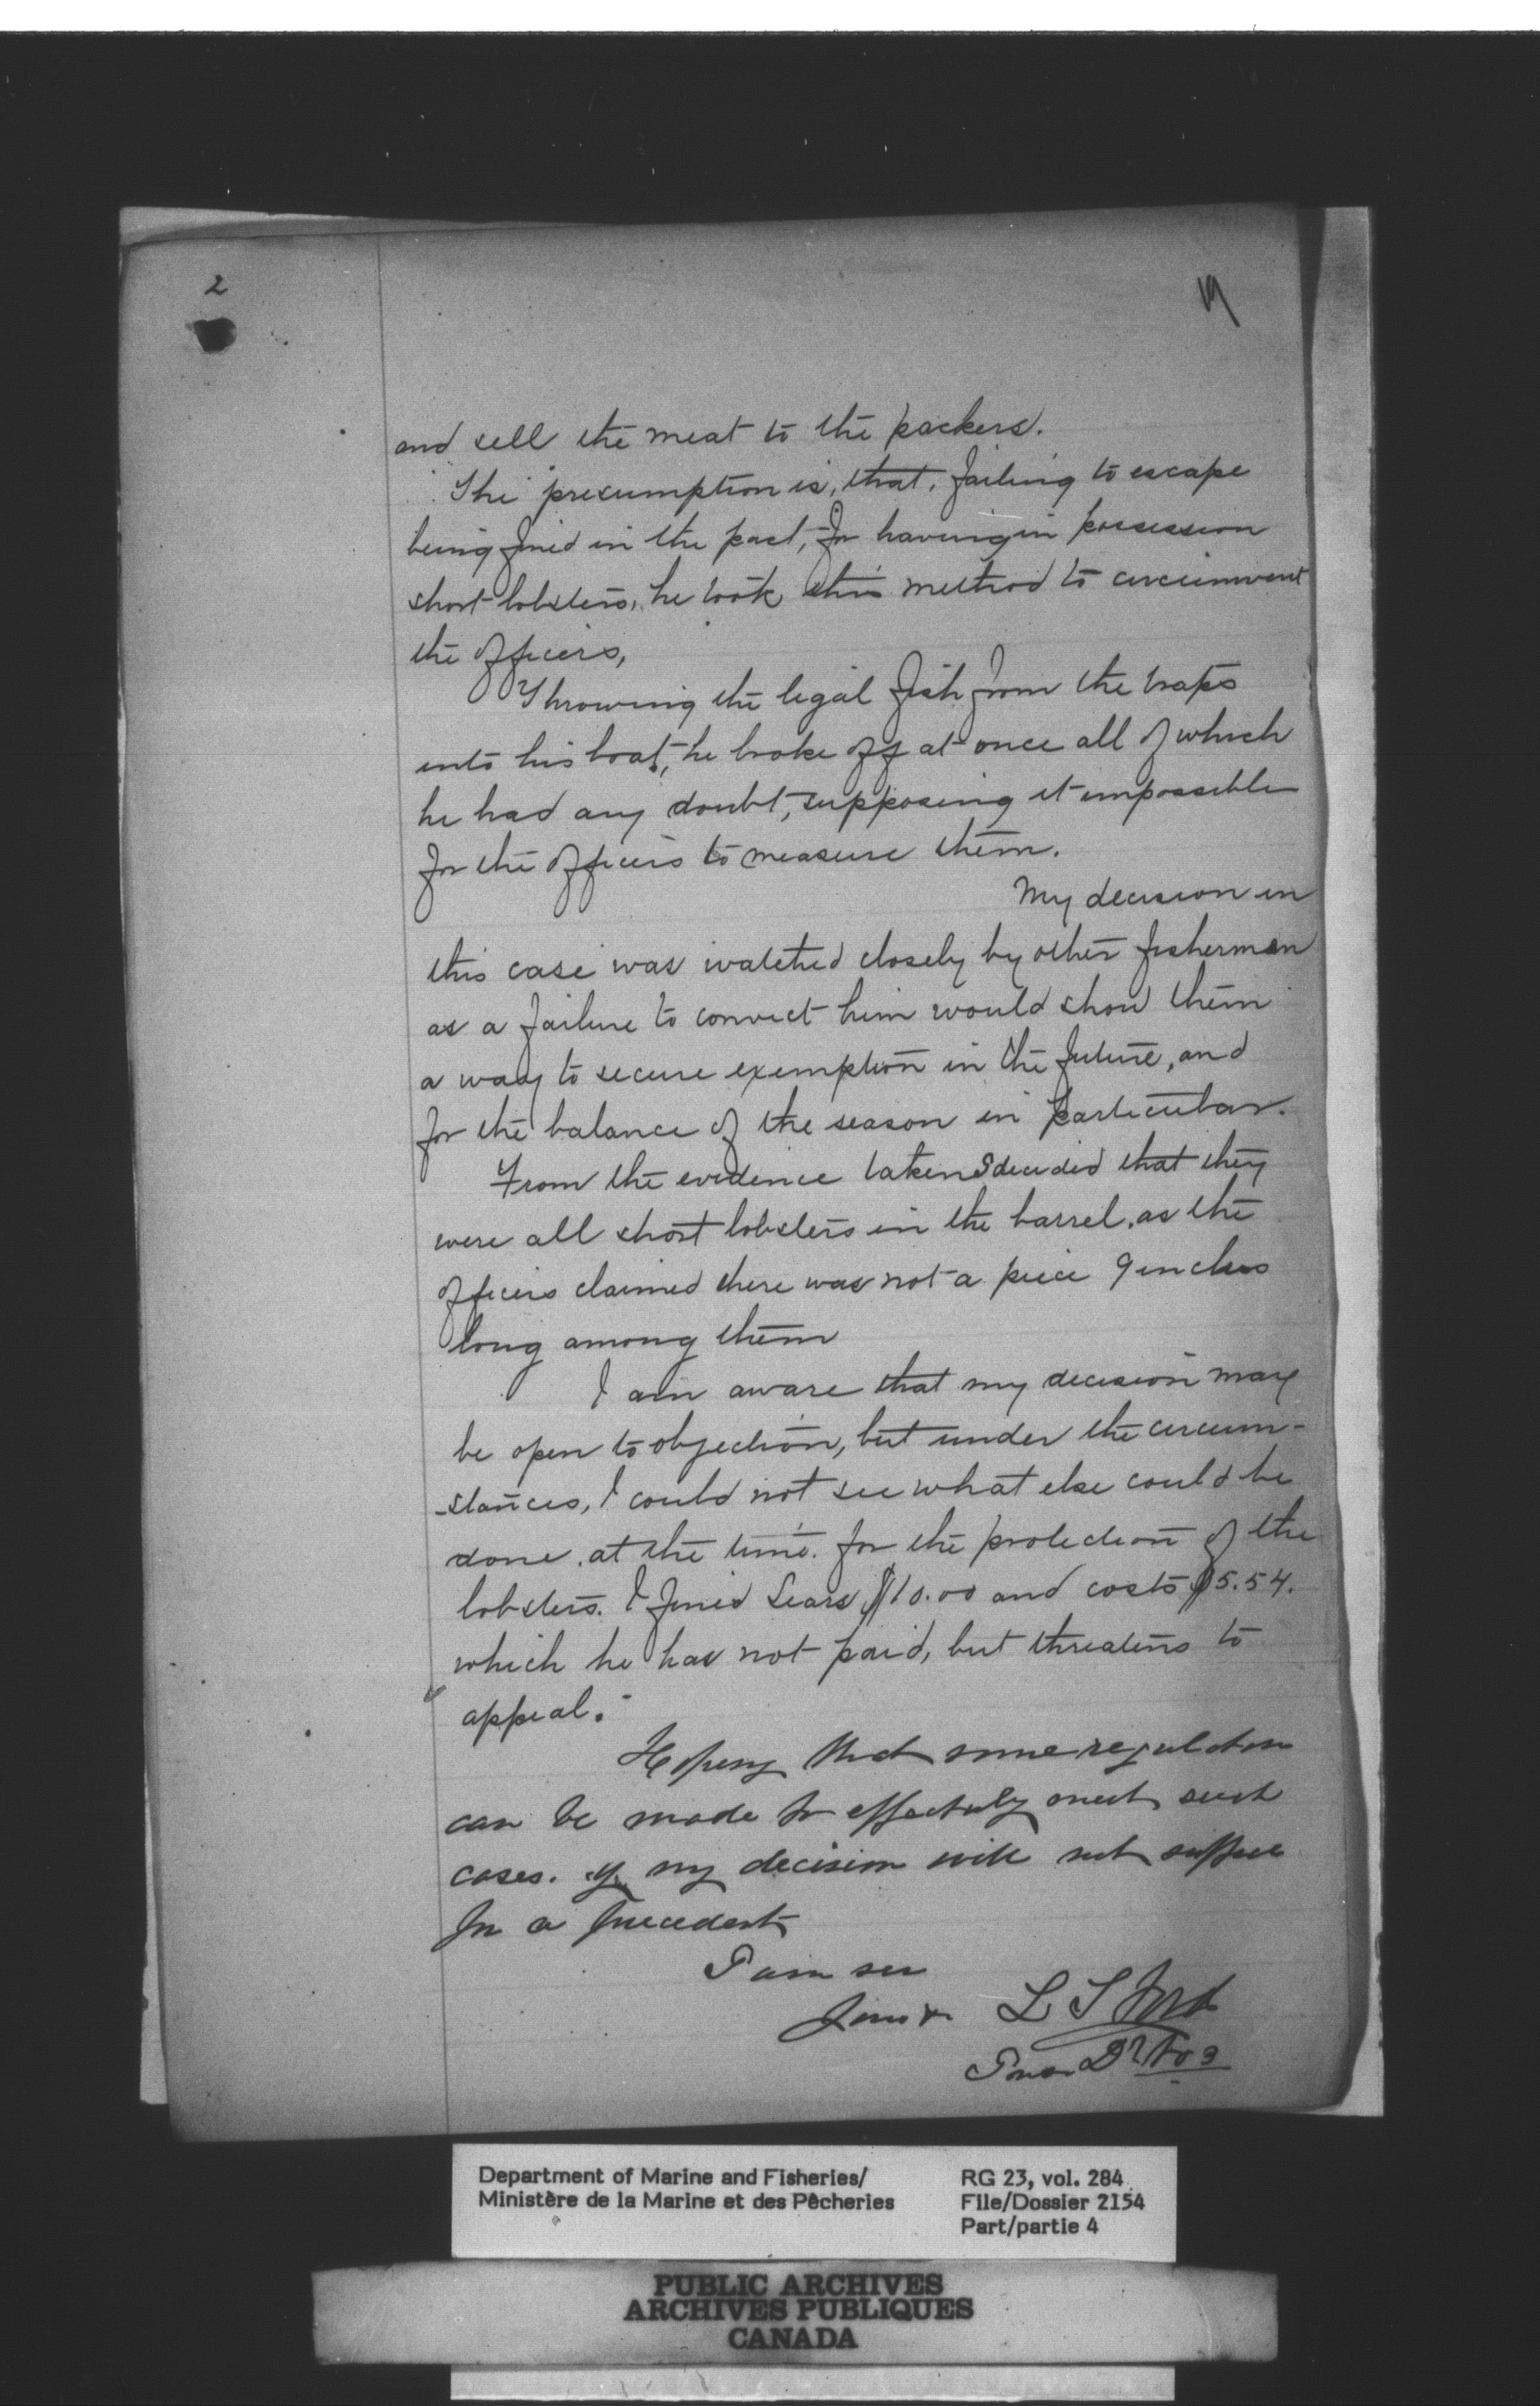 2
19
and sell the meat to the packers.
The presumption is, that, failing to escape
being fined in the past, for having in possession
short lobsters, he took this method to circumvent
the officers,
Throwing the legal fish from the traps
into his boat, he broke off at once all of which
he had any doubt, supposing it impossible
for the officers to measure them.
My decision in
this case was watched closely by other fishermen
as a failure to convict him would show them
a way to secure exemption in the future, and
for the balance of the season in particular.
From the evidence taken I decided that they
were all short lobsters in the barrel, as the
officers claimed there was not a piece 9 inches
long among them
I am aware that my decision may
be open to objection, but under the circum-
-stances, I could not see what else could be
done, at the time for the protection of the
lobsters. I fined Sears $10.00 and costs $5.54.
which he has not paid, but threatens to
appeal.
Hoping that some regulation
can be made to effectually meet such
cases. if my decision will not suffice
for a precedent
I am sir
L S Ford
Department of Marine and Fisheries/
Ministère de la Marine et des Pêcheries
RG 23, vol. 284
File/Dossier 2154
Part/partie 4
PUBLIC ARCHIVES
ARCHIVES PUBLIQUES
CANADA